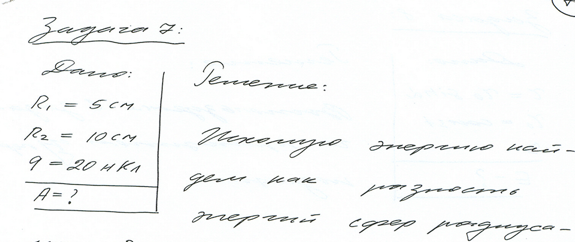 Задача 7:
Дано:
R₁ = 5 см
R₂ = 10 см
q = 20 нКл
A = ?
Решение:
Искомую энергию най-
дем как разность
энергий сфер радиуса-